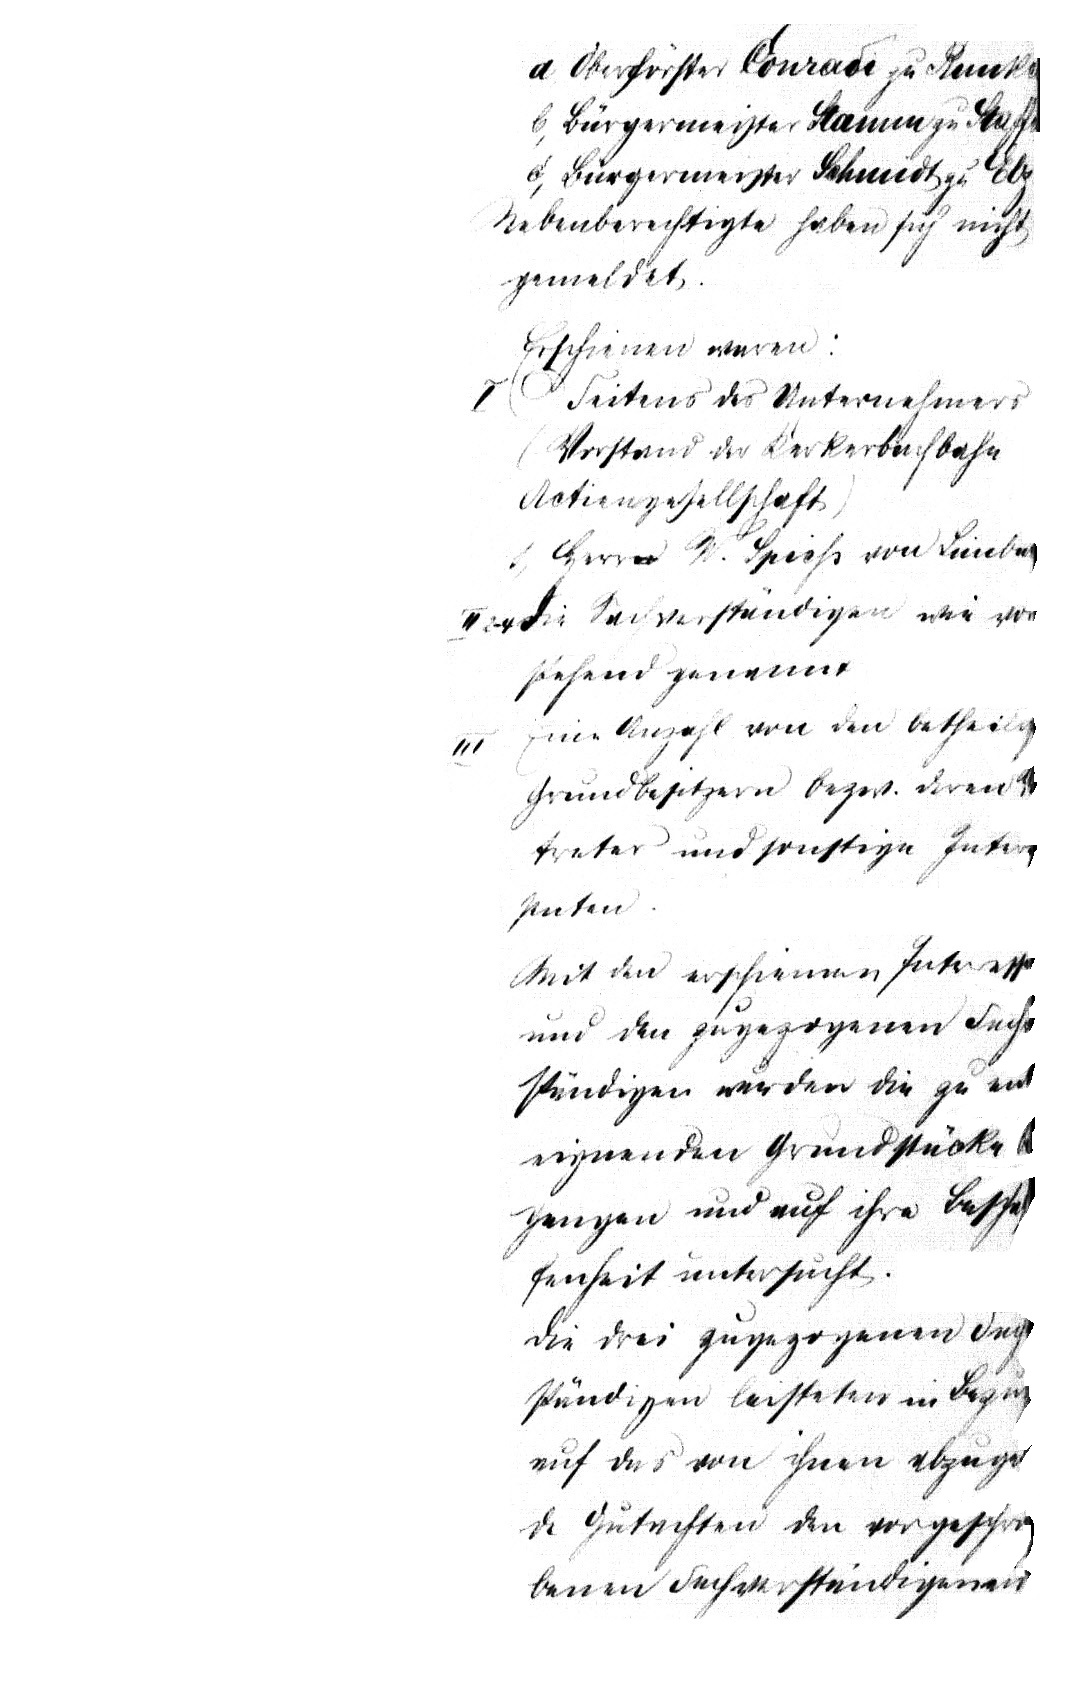 a, Oberförster Conradi zu Runkel
b, Bürgermeister Stamm zu Staffe
c, Bürgermeister Schmidt zu Elz
Nebenberechtigte haben sich nicht
gemeldet.
Erschienen waren:
I Seitens des Unternehmers
(Vorstand der Kerkerbachbahn
Actiengesellschaft)
1, Herr W. Spiess von Limbu
II 2-4 die Sachverständigen wie vor
stehend genannt
III Eine Anzahl von den betheilig
Grundbesitzern bezw. deren Ve
treter und sonstige Intere
senten.
Mit den erschienenen Interesse
und den zugezogenen Sachv
ständigen wurden die zu ent
eignenden Grundstücke be
gangen und auf ihre Beschaf
fenheit untersucht.
Die drei zugezogenen Sachv
ständigen leisteten in Bezug
auf das von ihnen abzugeb
de Gutachten den vorgeschrie
benen Sachverständigeneid